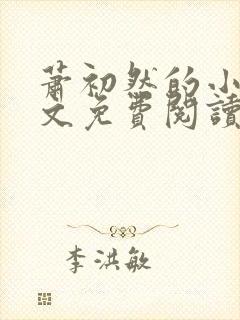 蕭初然的小
文免費閱讀
李洪敏